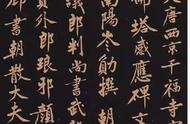 大唐西京千福寺
塔感應碑文
南陽岑勛撰朝
議郎判尚書武
員外郎琅邪顏
書朝散大夫